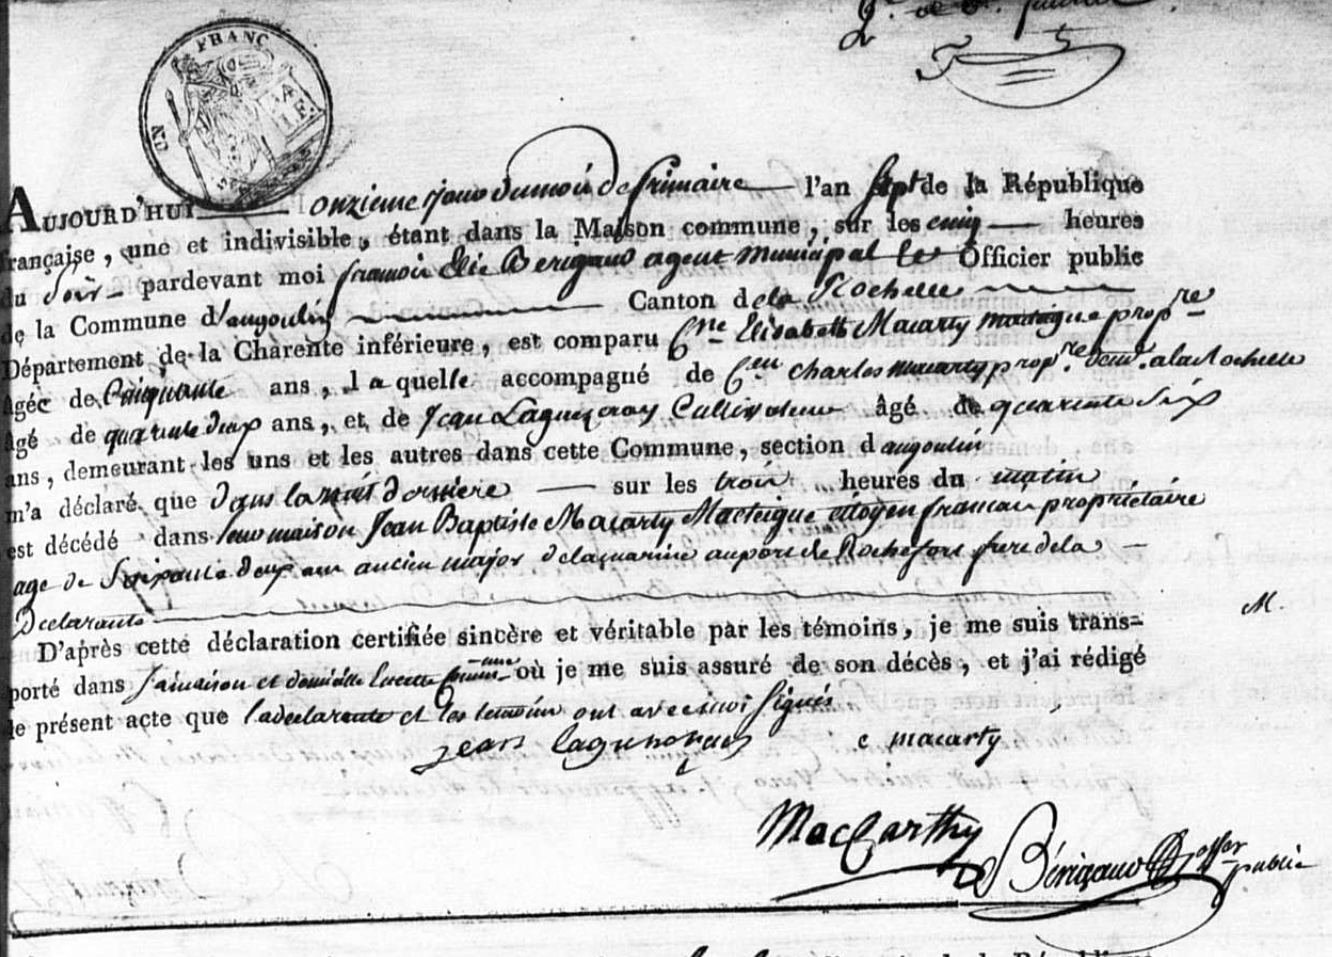 FRANC
AUJOURD'HUI onzieme jour du mois de frimaire l'an sept de la République
française, une et indivisible, étant dans la Maison commune, sur les cinq heures
du Soir pardevant moi francois Elie Berigaud agent Municipal Officier public
de la Commune d'angoulin Canton de la Rochelle
Département de la Charente inférieure, est comparu Cne Elisabeth Macarty mactaigue propre
âgée de Cinquante ans, laquelle accompagné de Cen Charles macarty propre demt. a la Rochelle
âgé de quarante deux ans, et de Jean Cultivateur âgé de quarente Six
ans, demeurant les uns et les autres dans cette Commune, section d'angoulin
m'a déclaré que dans la nuit derniere sur les trois heures du matin
est décédé dans Jean Baptiste Macarty Macteigue citoyen francais propriétaire
age de Soixante deux ans ancien major de la marine au port de Rochefort frere de la
Declarante
M.
D'après cette déclaration certifiée sincère et véritable par les témoins, je me suis trans-
porté dans sa maison et domicille où je me suis assuré de son décès, et j'ai rédigé
le présent acte que la declarente et les temoins ont avec moi Signés
jean c macarty
MacCarthy
Bérigaud offer public